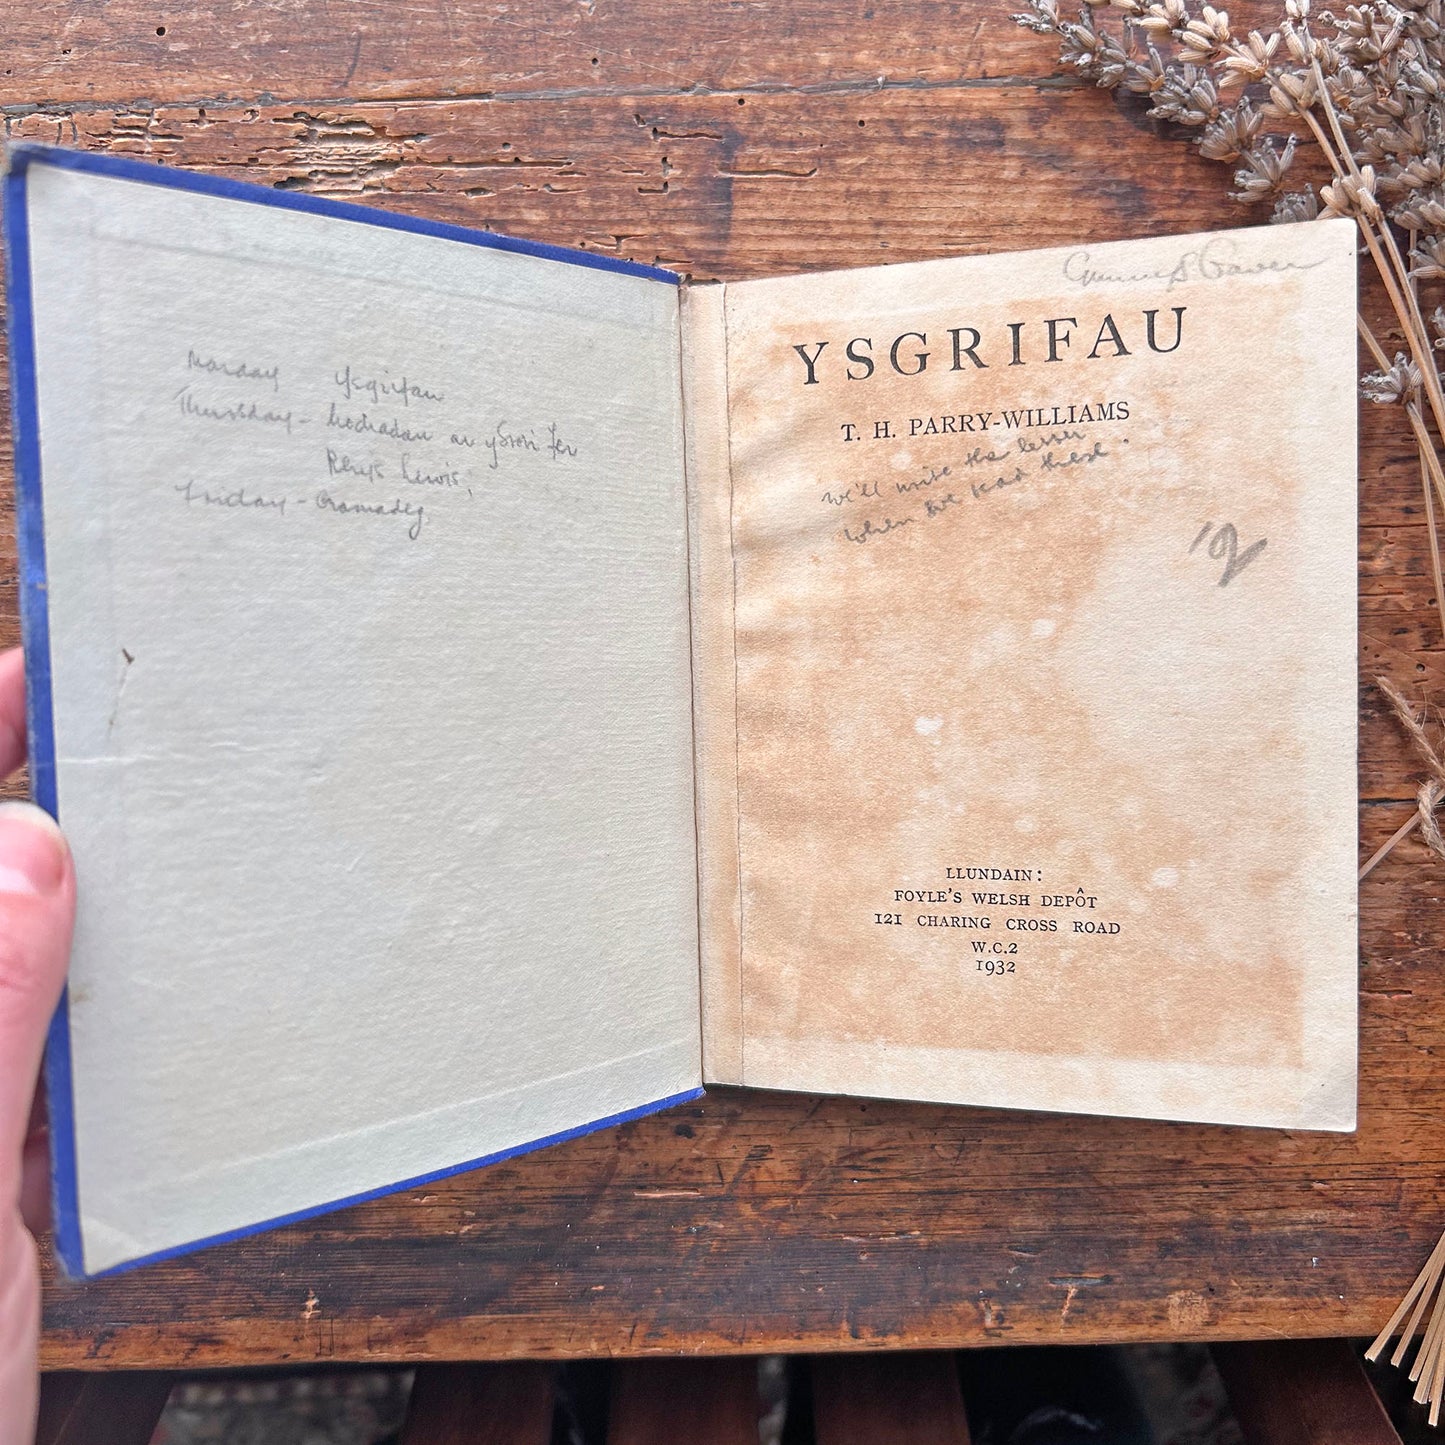 Monday Ysgrifau
Thursday - Nodiadau ar ystori fer
Rhys Lewis,
Friday - Gramadeg
YSGRIFAU
T. H. PARRY-WILLIAMS
we'll write the lesser
when we read these.
'2
LLUNDAIN:
FOYLE'S WELSH DEPÔT
121 CHARING CROSS ROAD
W.C.2
1932